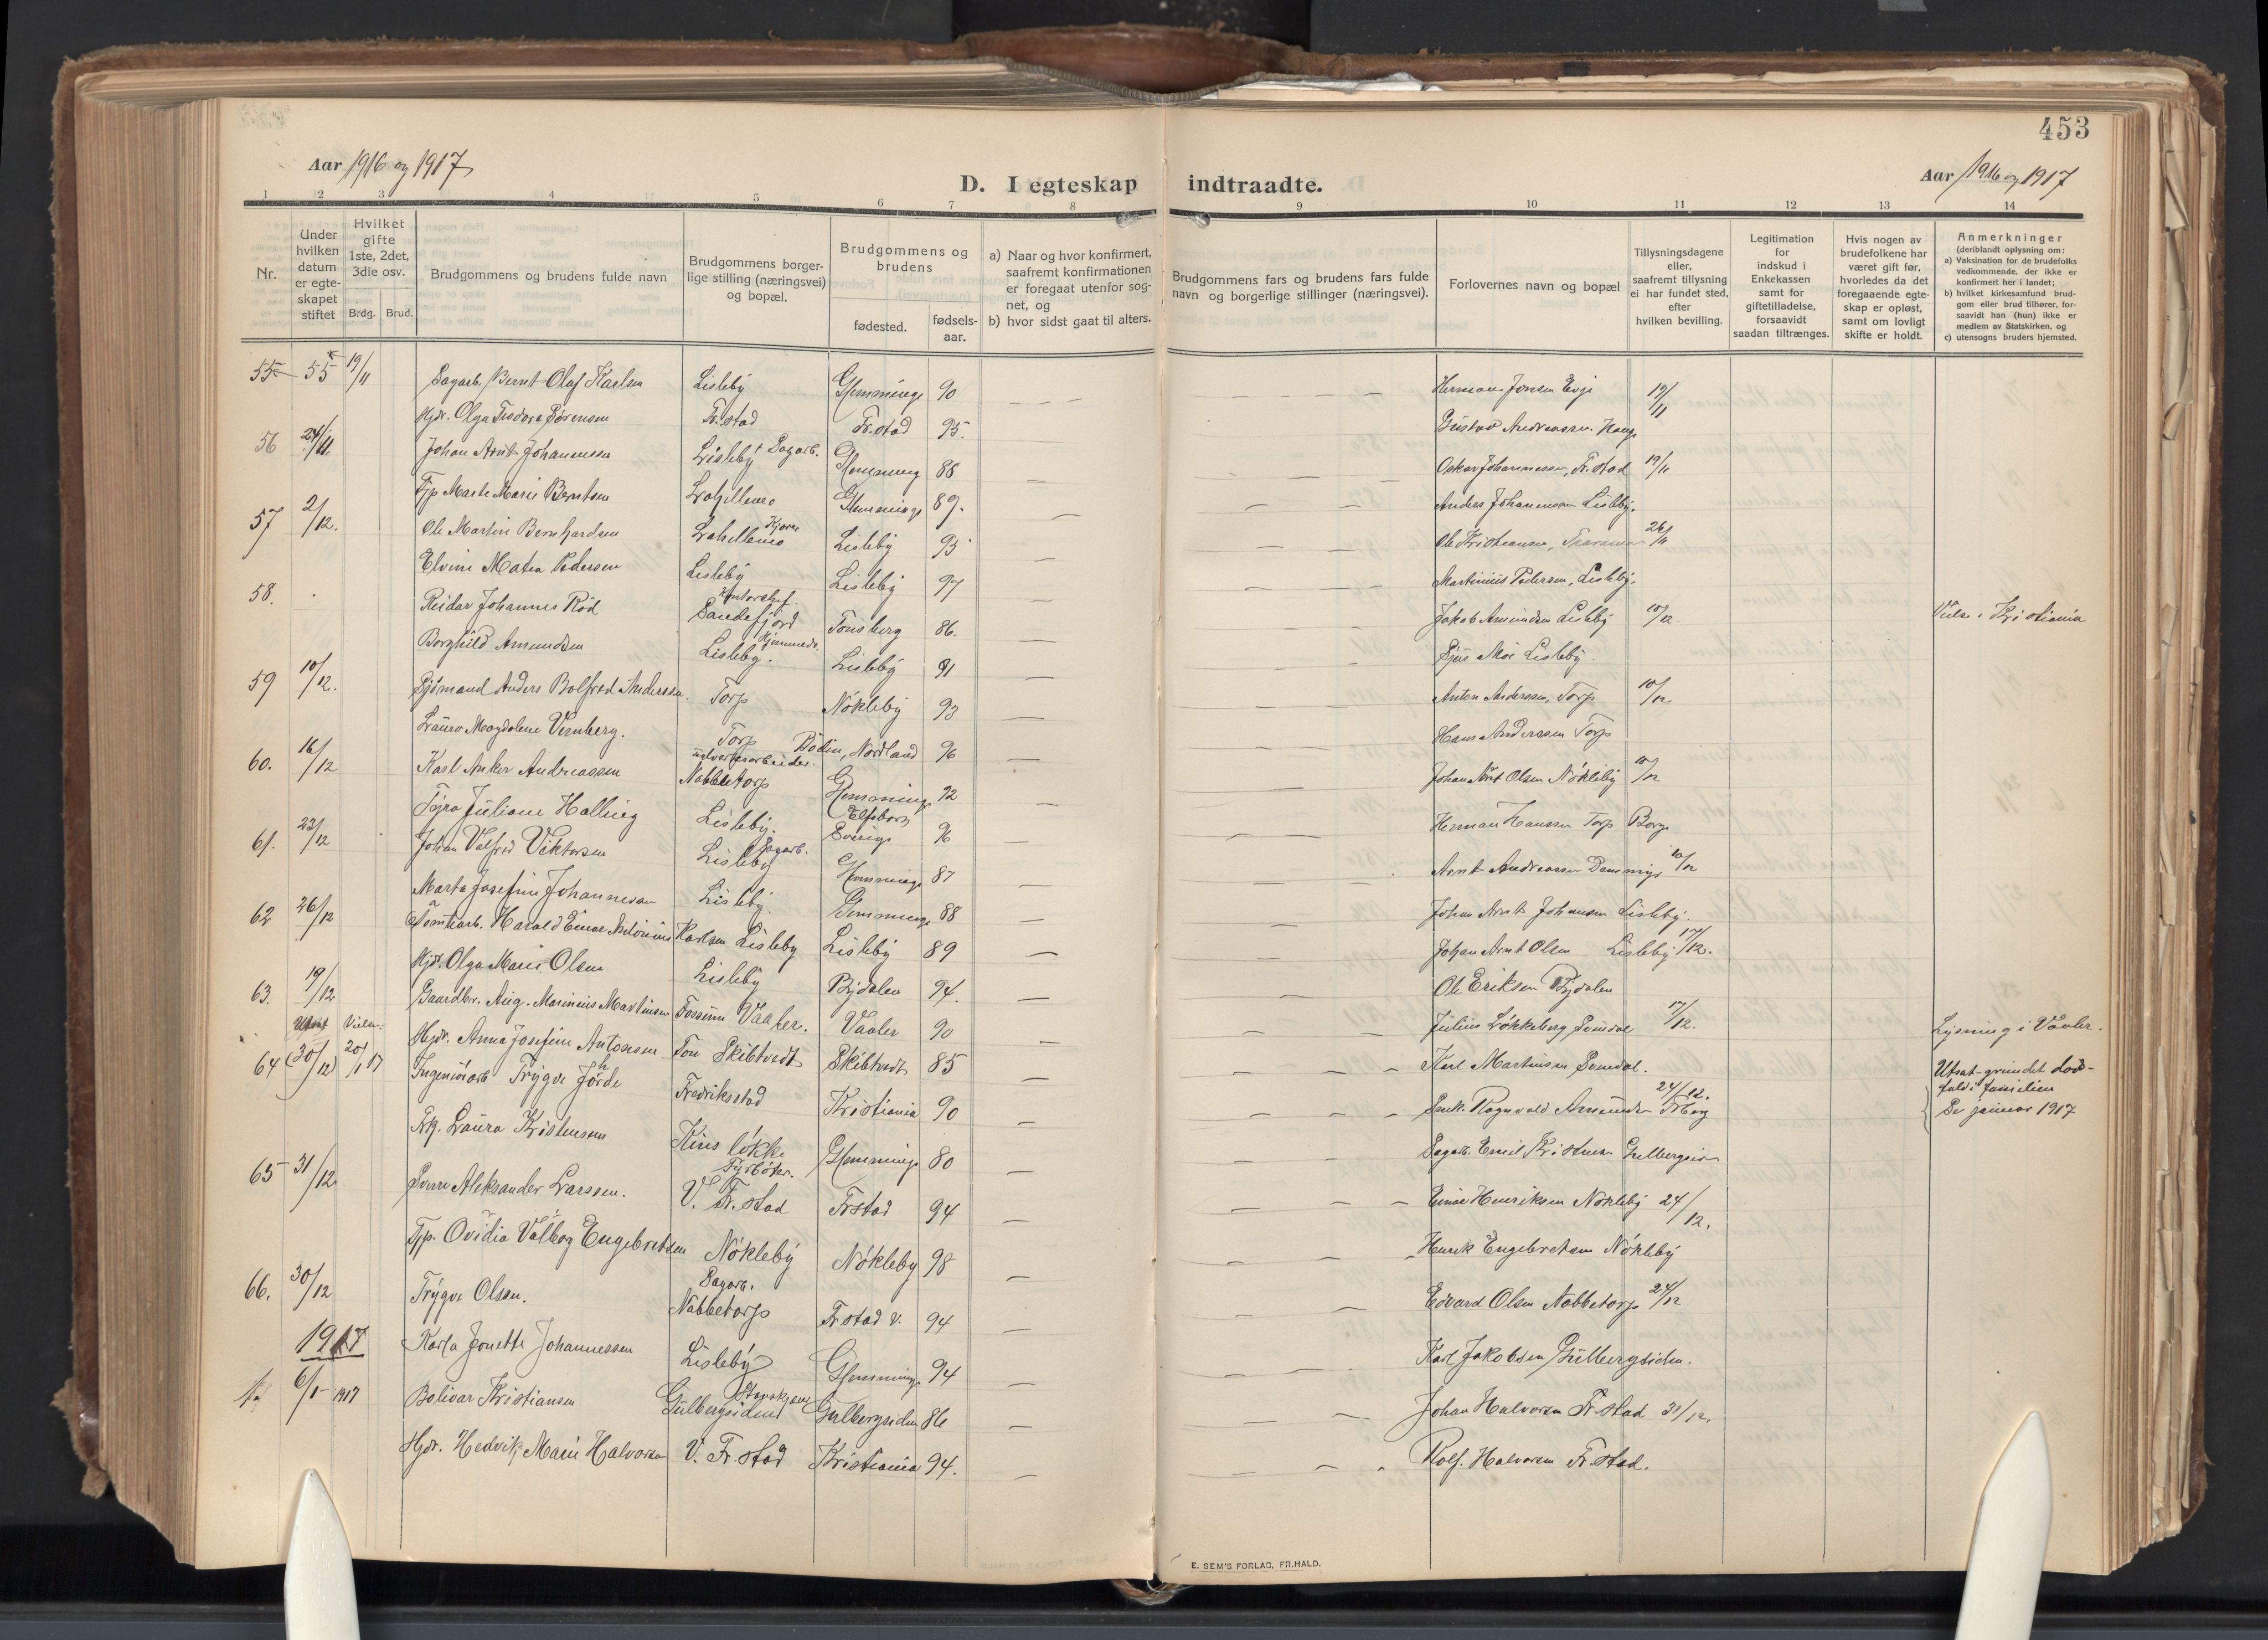 453
Aar 1916 og 1917
D. I egteskap indtraadte.
Aar 1916 og 1917
1 2 3 4 5 6 7 8 9 10 11 12 13 14
Nr.
Under hvilken datum er egteskapet stiftet
Hvilket gifte 1ste, 2det, 3die osv.
Brdg. Brud.
Brudgommens og brudens fulde navn
Brudgommens borgerlige stilling (næringsvei) og bopæl.
Brudgommens og brudens
fødested.
fødselsaar.
a) Naar og hvor konfirmert, saafremt konfirmationen er foregaat utenfor sognet, og
b) hvor sidst gaat til alters.
Brudgommens fars og brudens fars fulde navn og borgerlige stillinger (næringsvei).
Forlovernes navn og bopæl
Tillysningsdagene eller, saafremt tillysning ei har fundet sted, efter hvilken bevilling.
Legitimation for indskud i Enkekassen samt for giftetilladelse, forsaavidt saadan tiltrænges.
Hvis nogen av brudefolkene har været gift før, hvorledes da det foregaaende egteskap er opløst, samt om lovligt skifte er holdt.
Anmerkninger
(deriblandt oplysning om:
a) Vaksination for de brudefolks vedkommende, der ikke er konfirmert her i landet;
b) hvilket kirkesamfund brudgom eller brud tilhører, forsaavidt han (hun) ikke er medlem av Statskirken, og
c) utensogns bruders hjemsted.
55 55 19/11 Sagarb. Bernt Olaf Karlsen Lisleby Glemminge 90 Herman Jonsen Evje 19/11
Hjdr. Olga Teodora Sørensen Fr.stad Fr.stad 95. Gustav Andreassen Hauge
56 24/11 Johan Arnt Johannessen Lisleby Sagarb. Glemming 88 Oskar Johannessen, Fr.stad 19/11
Tjp Marte Marie Berntsen Glemminge 89. Anders Johannessen Lisleby.
57 2/12. Ole Martin Bernhardsen Kjører Lisleby 95 Ole Kristiansen, 26/11
Elvine Matea Pedersen Lisleby Lisleby 97 Martinius Pedersen, Lisleby.
58. Reidar Johannes Rød Kontorchef. Sandefjord Tønsberg 86. Jakob Amundsen Lisleby 10/12. Vielse i Kristiania
Borghild Amundsen Lisleby. Hjemmedr. Lisleby 91 Sjur Moe Lisleby
59 10/12. Sjømand Anders Bolfred Anderssen. Torp Nøkleby 93 Anton Anderssen, Torp 10/12
Laura Magdalene Vernberg. Torp Bodin, Nordland 96 Hans Anderssen Torp
60. 16/12 Karl Anker Andreassen Nabbetorp Glemminge 92 Johan Arnt Olsen Nøkleby 10/12
Tora Juliane Halling Lisleby. Elfsborg Sverige 96 Herman Hansen Torp Borge
61. 23/12 Johan Valfrid Viktorsen Sagarb. Lisleby Glemminge 87 Arnt Andreassen 10/12
Marta Josefine Johannessen Lisleby Glemminge 88 Johan Arnt Johansen Lisleby.
62 26/12 Tomtearb. Harald Einar Antonius Karlsen Lisleby Lisleby 89 Johan Arnt Olsen Lisleby 17/12.
Hjdr. Olga Marie Olsen Lisleby Bydalen 94. Ole Eriksen Bydalen
63. 19/12 Gaardbr. Aug. Marinius Martinsen Fossum Vaaler. Vaaler 90 Julius Løkkeberg Svindal 17/12. Lysning i Vaaler.
Utsat Vielse:
Hjdr. Anna Josefine Antonsen Ton Skibtvedt Skibtvedt 85 Karl Martinsen Svindal.
64 (30/12) 20/1 17 Ingeniørarb Trygve Jørde Fredriksstad Kristiania 90 Ragnvald Amundsen 24/12. Utsat grundet dødsfald i familien Se januar 1917
Frk. Laura Kristensen Kirs løkke Glemminge 80 Sagarb. Emil Kristensen
65 31/12 Sverre Aleksander Larssen. Fyrbøter. V. Fr.stad Frstad 94 Einar Henriksen Nøkleby 24/12.
Tjp. Ovidia Valborg Engebretsen Nøkleby Nøkleby 98 Henrik Engebretsen Nøkleby
66. 30/12 Trygve Olsen. Sagarb. Nabbetorp Fr.stad v. 94 Edvard Olsen Nabbetorp 24/12
1917
Karla Jonette Johannessen Lisleby Glemminge 94 Karl Jakobsen Gulbergsiden.
1. 6/1 1917 Bolivar Kristiansen Gulbergsiden Gulbergsiden 86 Johan Halvorsen Fr.stad 31/12.
Hjdr. Hedvik Marie Halvorsen V. Fr.stad Kristiania 94. Rolf. Halvorsen Fr.stad.
E. SEM'S FORLAG, FR.HALD.